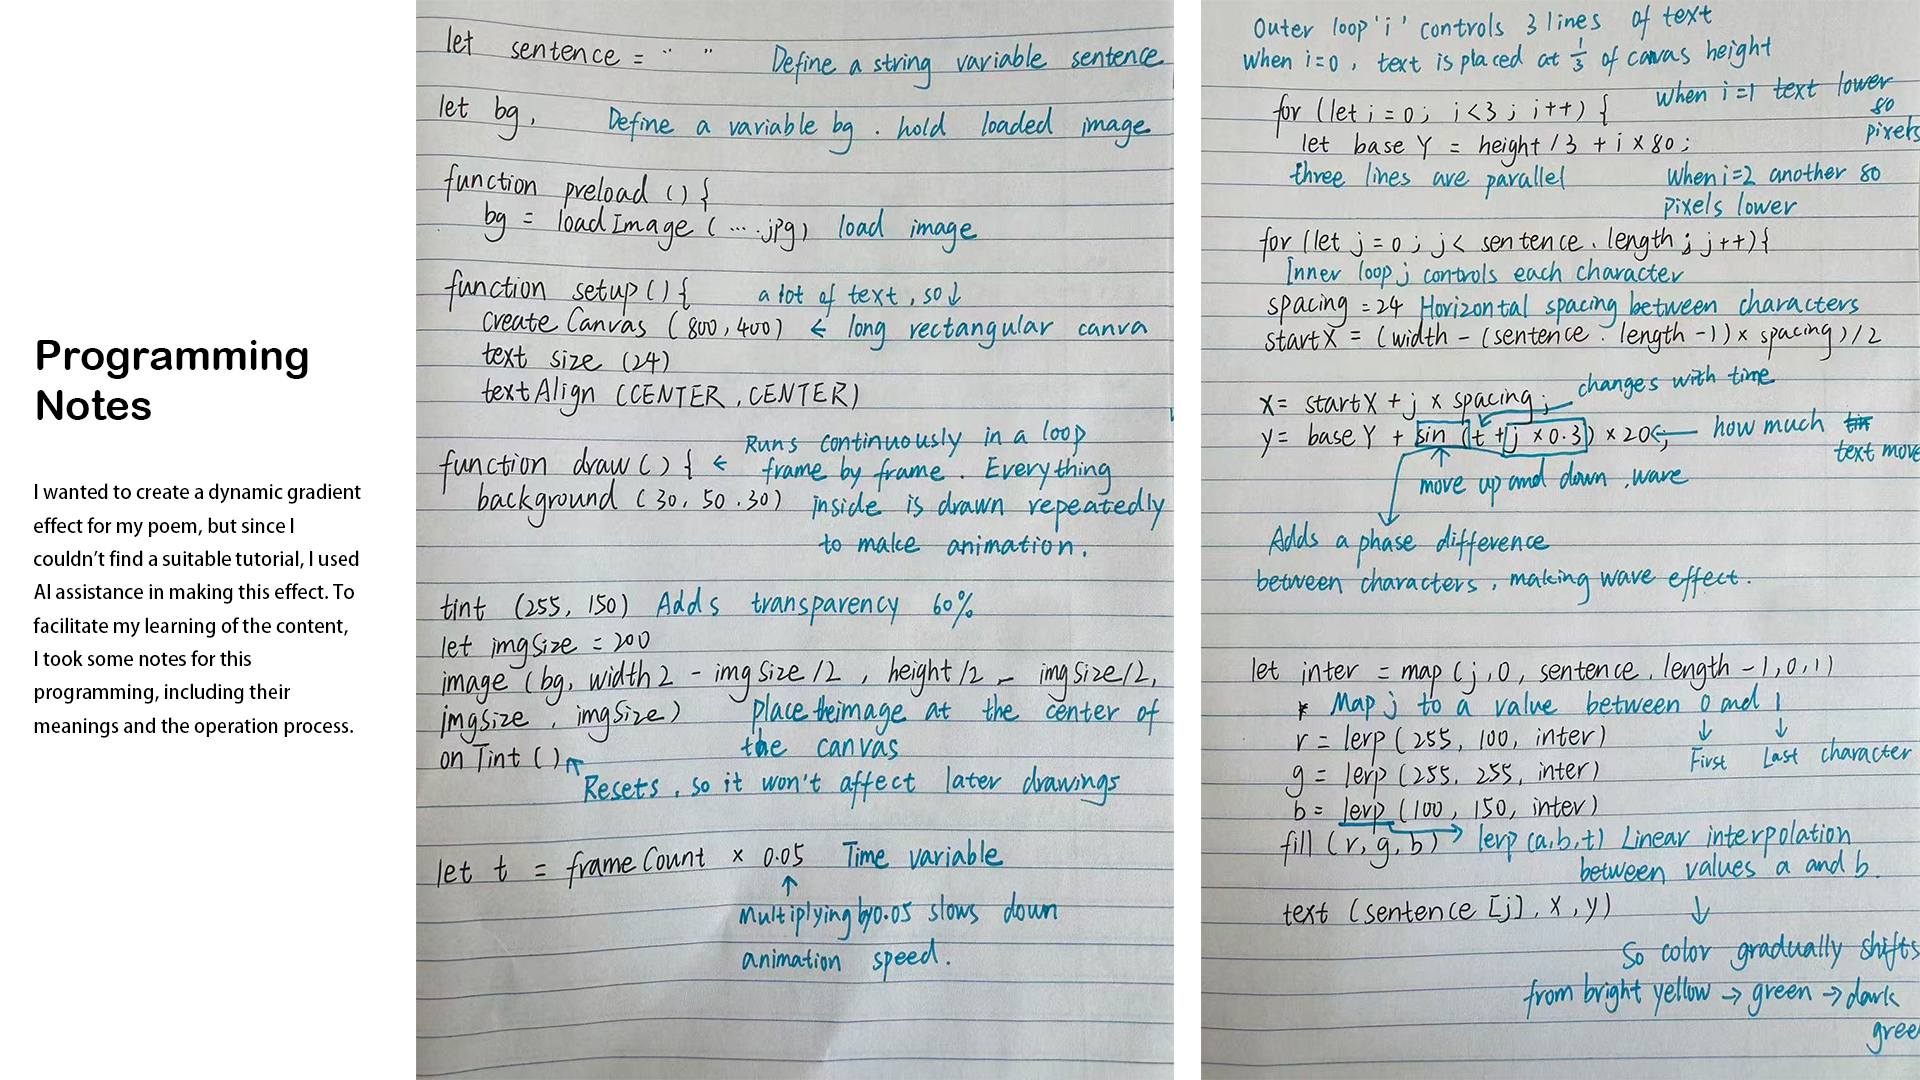 Programming
Notes
I wanted to create a dynamic gradient
effect for my poem, but since I
couldn't find a suitable tutorial, I used
AI assistance in making this effect. To
facilitate my learning of the content,
I took some notes for this
programming, including their
meanings and the operation process.
let sentence = " " Define a string variable sentence
let bg, Define a variable bg. hold loaded image
function preload () {
bg = loadImage (....jpg) load image
function setup () { a lot of text, so ↓
create Canvas (800, 400) ← long rectangular canva
text size (24)
textAlign (CENTER, CENTER)
Runs continuously in a loop
function draw () { ← frame by frame. Everything
background (30, 50. 30) inside is drawn repeatedly
to make animation.
tint (255, 150) Adds transparency 60%
let imgSize = 200
image (bg, width 2 - img Size /2, height /2 - imgSize/2,
imgSize, imgSize) place the image at the center of
the canvas
on Tint ()
Resets, so it won't affect later drawings
let t = frameCount × 0.05 Time variable
↑
Multiplying by 0.05 slows down
animation speed.
Outer loop 'i' controls 3 lines of text
When i=0, text is placed at 1/3 of canvas height
for (let i = 0; i<3; i++) { when i=1 text lower
80
pixels
let base Y = height / 3 + i × 80;
three lines are parallel When i=2 another 80
pixels lower
for (let j = 0; j < sentence. length; j++) {
Inner loop j controls each character
spacing = 24 Horizontal spacing between characters
startX = (width - (sentence. length -1) × spacing) / 2
changes with time
x = startX + j × spacing;
y = base Y + sin (t + j × 0.3) × 20; ← how much
text move
move up and down, wave
Adds a phase difference
between characters, making wave effect.
let inter = map (j, 0, sentence. length -1, 0, 1)
* Map j to a value between 0 and 1
r = lerp (255, 100, inter) ↓ ↓
First Last character
g = lerp (255. 255, inter)
b = lerp (100, 150, inter)
fill (r, g, b) → lerp (a,b,t) Linear interpolation
between values a and b.
text (sentence [j], x, y) ↓
So color gradually shifts
from bright yellow → green → dark
gree